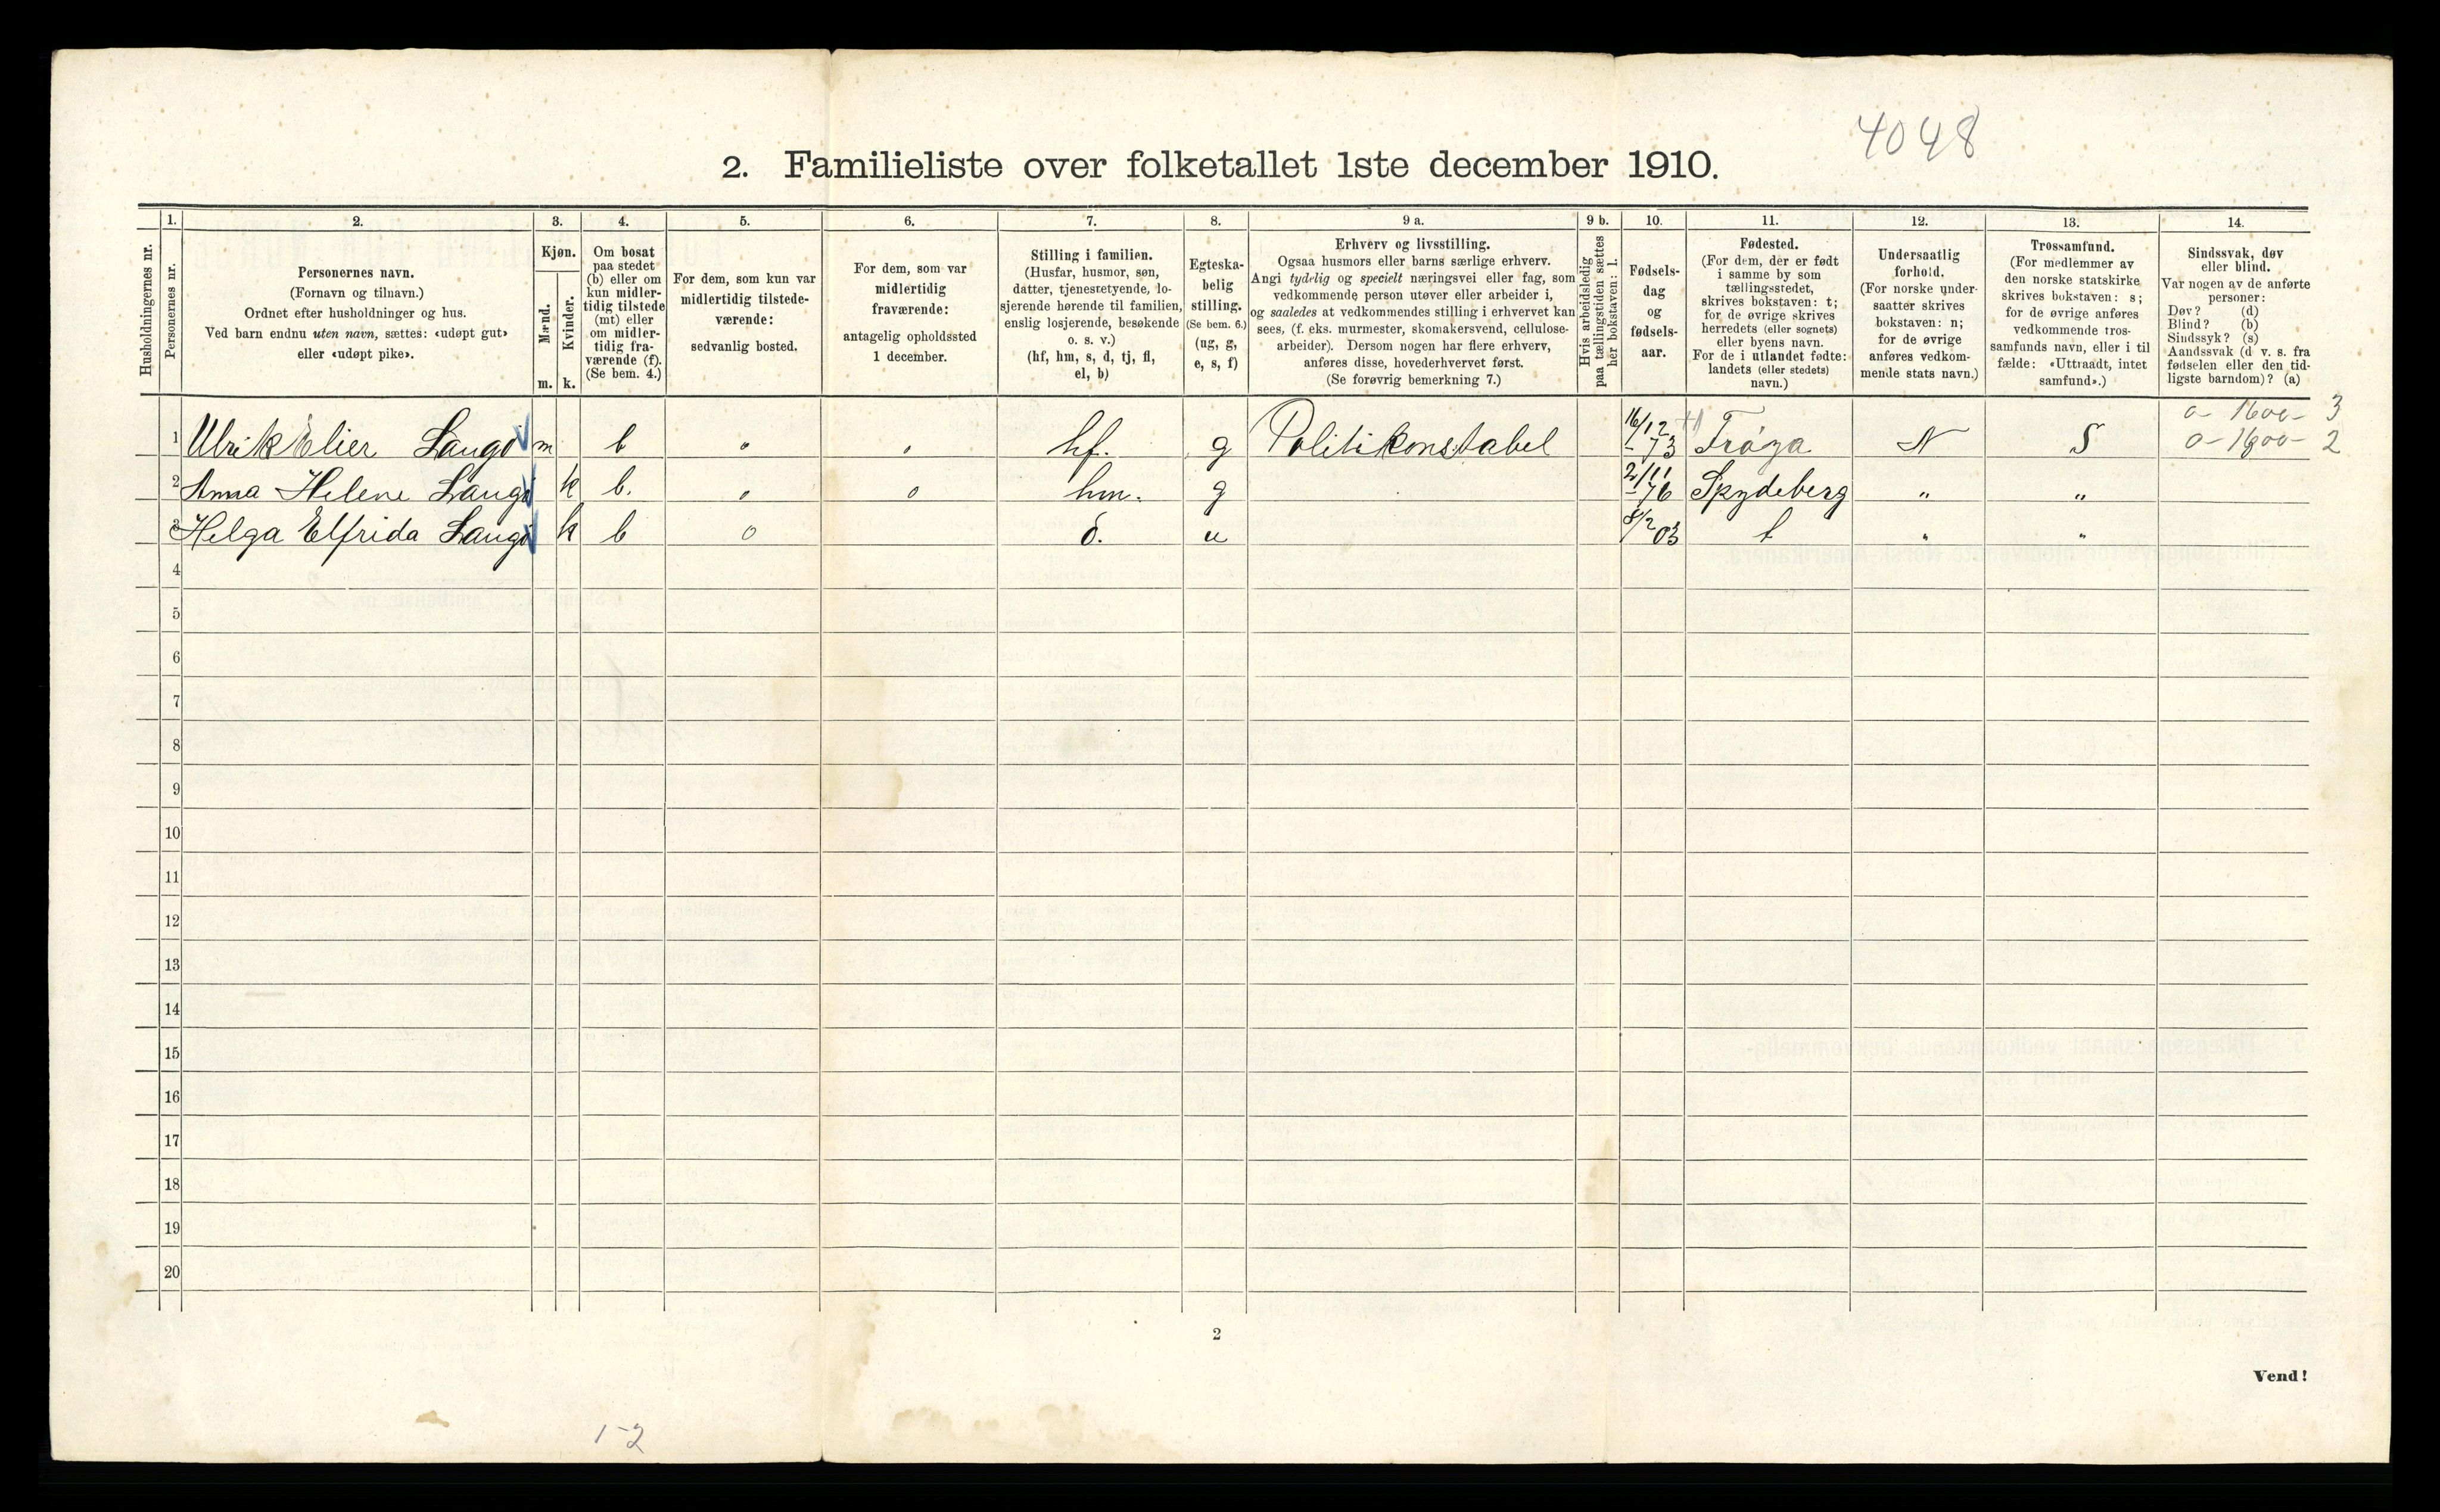 4048
2. Familieliste over folketallet 1ste december 1910.
Husholdningernes nr.
1.
Personernes nr.
2.
Personernes navn.
(Fornavn og tilnavn.)
Ordnet efter husholdninger og hus.
Ved barn endnu uten navn, sættes: «udøpt gut»
eller «udøpt pike».
3.
Kjøn.
Mænd.
m.
Kvinder.
k.
4.
Om bosat
paa stedet
(b) eller om
kun midler-
tidig tilstede
(mt) eller
om midler-
tidig fra-
værende (f).
(Se bem. 4.)
5.
For dem, som kun var
midlertidig tilstede-
værende:
sedvanlig bosted.
6.
For dem, som var
midlertidig
fraværende:
antagelig opholdssted
1 december.
7.
Stilling i familien.
(Husfar, husmor, søn,
datter, tjenestetyende, lo-
sjerende hørende til familien,
enslig losjerende, besøkende
o. s. v.)
(hf, hm, s, d, tj, fl,
el, b)
8.
Egteska-
belig
stilling.
(Se bem. 6.)
(ug, g,
e, s, f)
9 a.
Erhverv og livsstilling.
Ogsaa husmors eller barns særlige erhverv.
Angi tydelig og specielt næringsvei eller fag, som
vedkommende person utøver eller arbeider i,
og saaledes at vedkommendes stilling i erhvervet kan
sees, (f. eks. murmester, skomakersvend, cellulose-
arbeider). Dersom nogen har flere erhverv,
anføres disse, hovederhvervet først.
(Se forøvrig bemerkning 7.)
9 b.
Hvis arbeidsledig
paa tællingstiden sættes
her bokstaven: l.
10.
Fødsels-
dag
og
fødsels-
aar.
11.
Fødested.
(For dem, der er født
i samme by som
tællingsstedet,
skrives bokstaven: t;
for de øvrige skrives
herredets (eller sognets)
eller byens navn.
For de i utlandet fødte:
landets (eller stedets)
navn.)
12.
Undersaatlig
forhold.
(For norske under-
saatter skrives
bokstaven: n;
for de øvrige
anføres vedkom-
mende stats navn.)
13.
Trossamfund.
(For medlemmer av
den norske statskirke
skrives bokstaven: s;
for de øvrige anføres
vedkommende tros-
samfunds navn, eller i til
fælde: «Uttraadt, intet
samfund».)
14.
Sindssvak, døv
eller blind.
Var nogen av de anførte
personer:
Døv? (d)
Blind? (b)
Sindssyk? (s)
Aandssvak (d v. s. fra
fødselen eller den tid-
ligste barndom)? (a)
0- 1600- 3
1 Ulrik Elier Langø m b " " hf. g Politikonstabel 16/12 73 Trøga N S 0-1600- 2
2 Anna Helene Langø k b. " o hm. g 2/11 76 Spydeberg " "
3 Helga Elfrida Langø k b o d. u 8/2 03 t " "
4
5
6
7
8
9
10
11
12
13
14
15
16
17
18
19
20
2
Vend!
1-2